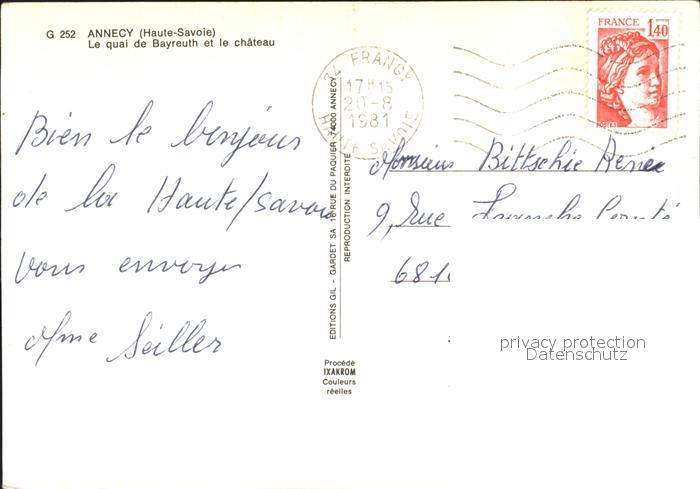 G 252 ANNECY (Haute-Savoie)
Le quai de Bayreuth et le château
FRANCE
1,40
POSTES
74 FRANGY
17H15
20-8
1981
HAUTE SAVOIE
Bien le bonjour
de la Haute/savoie
vous envoye
Mme Seiller
EDITIONS GIL - GARDET SA 16 RUE DU PAQUIER 74000 ANNECY
REPRODUCTION INTERDITE
Procédé
IXAKROM
Couleurs
réelles
Monsieur Bittschie
9, Rue Franche Comté
681
privacy protection
Datenschutz